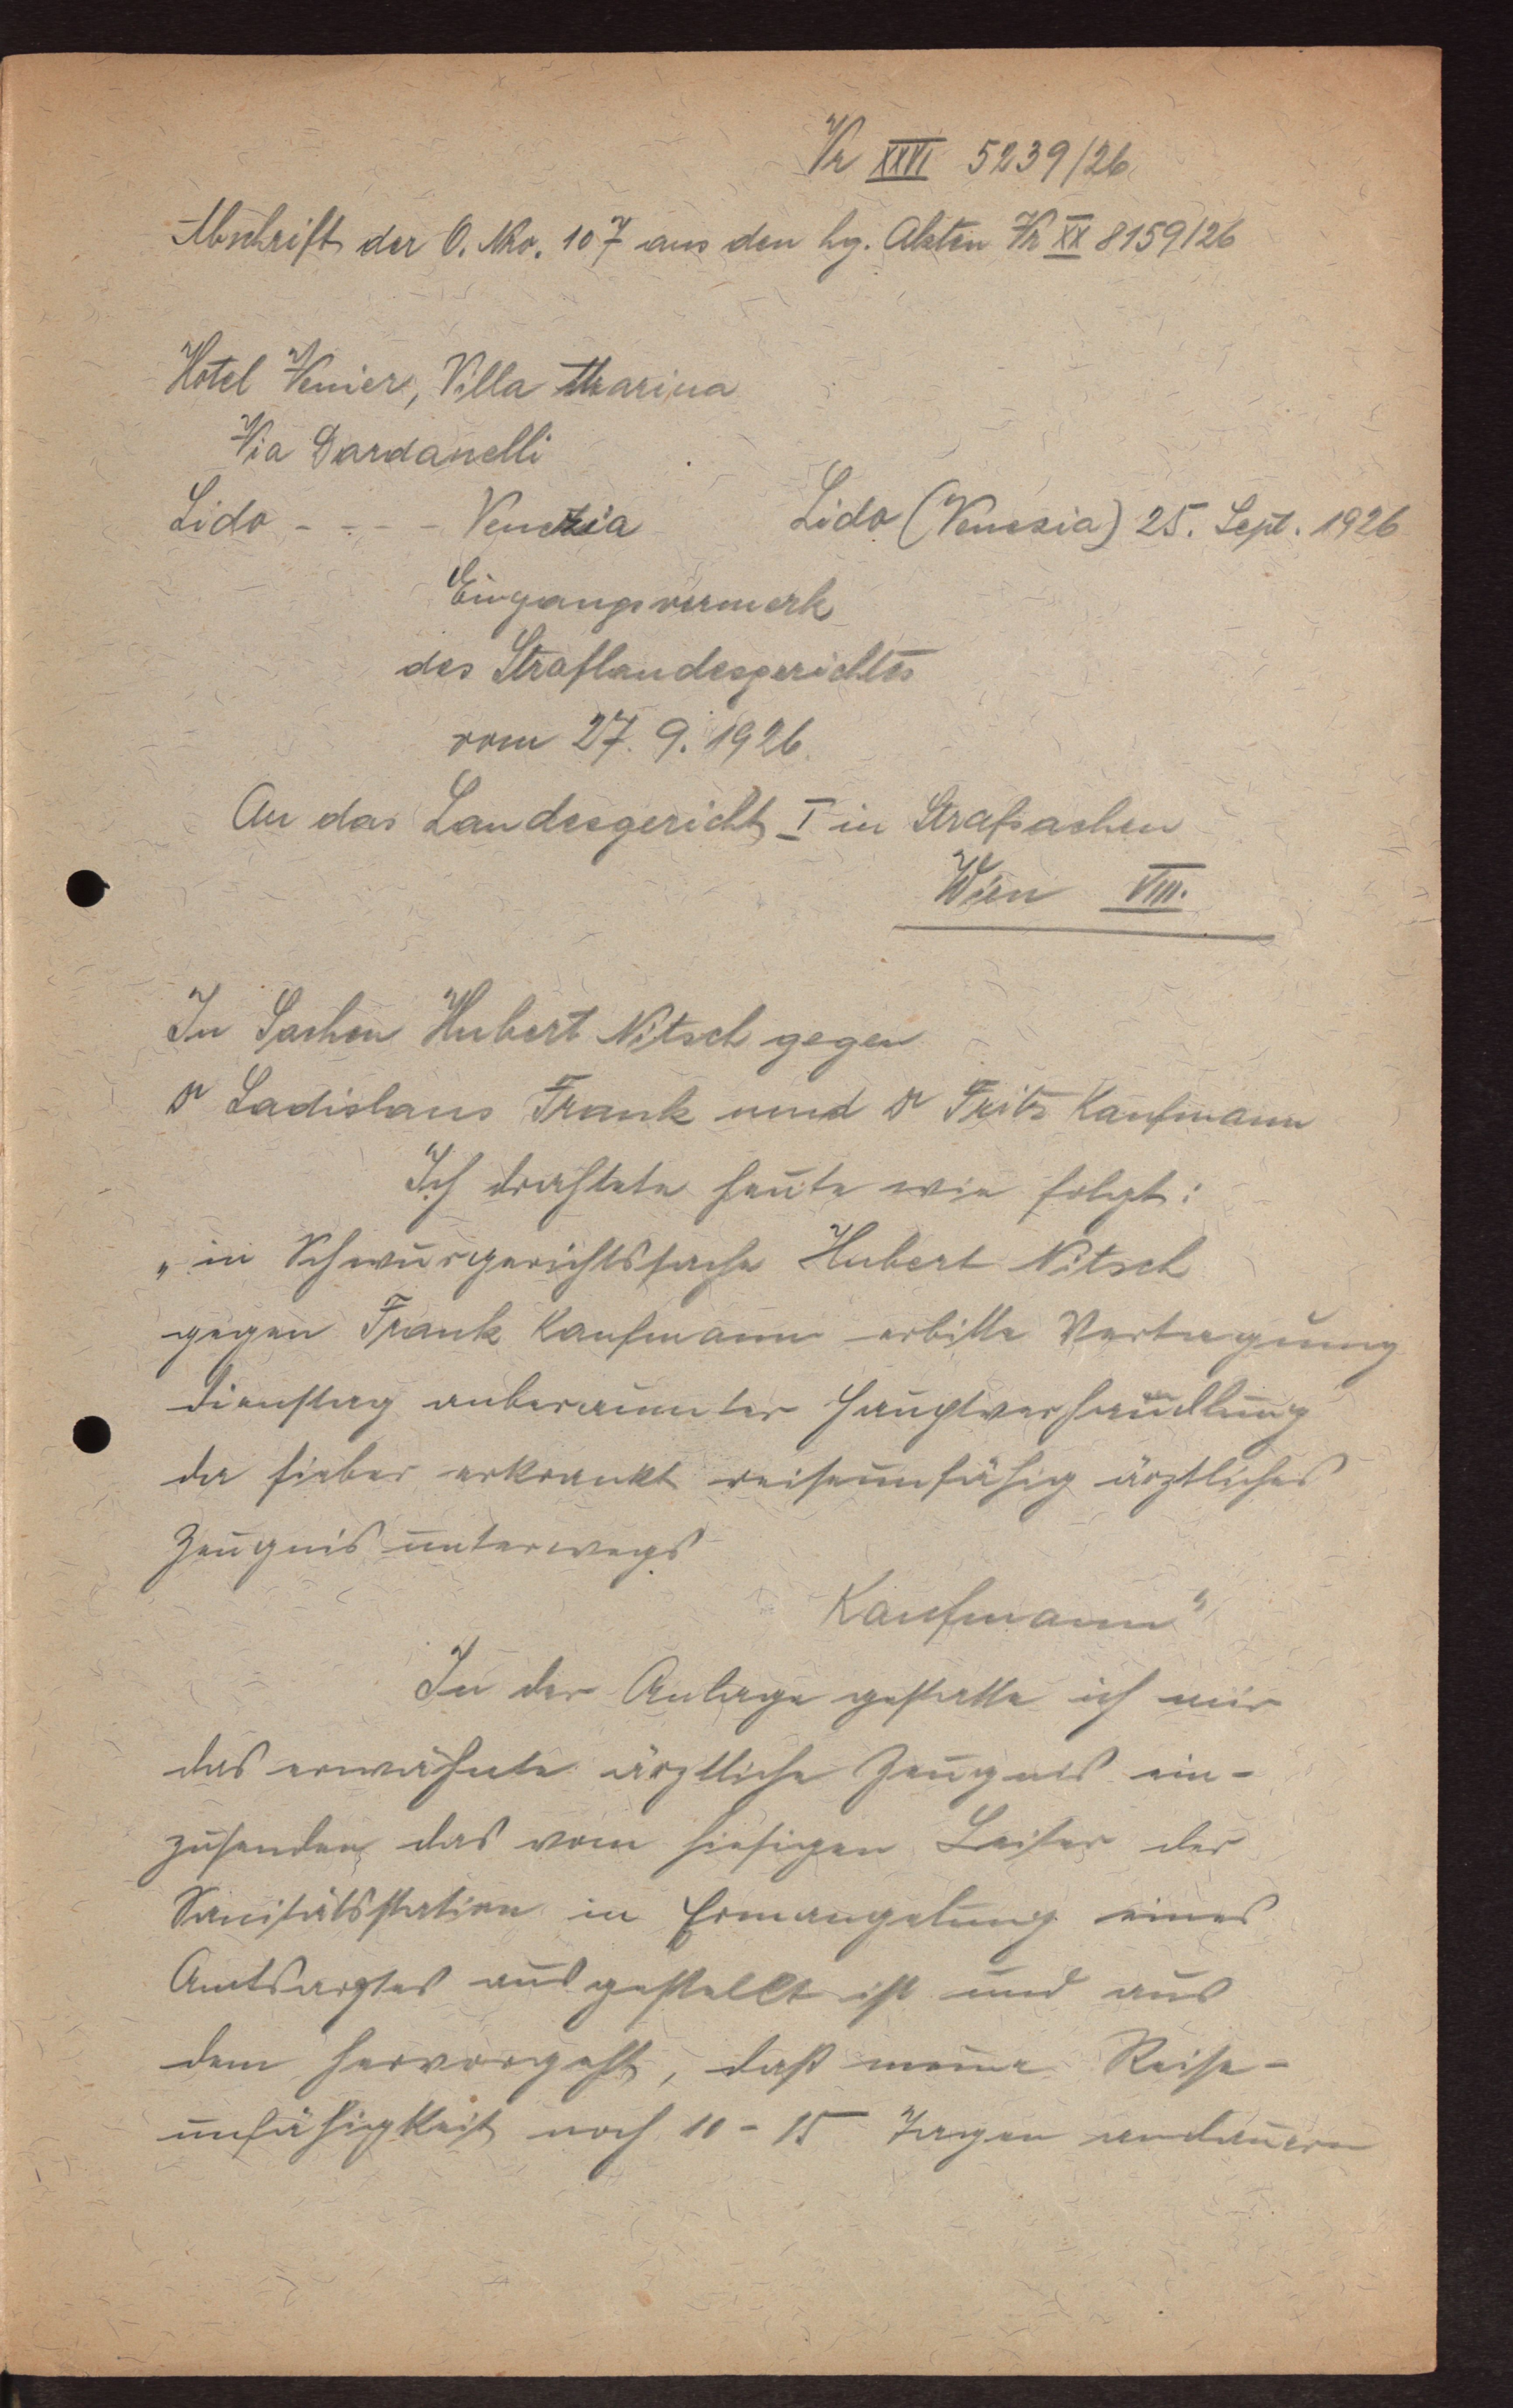 Vr XXVI 5239/26
Abschrift der O. No. 107 aus den hg. Akten Vr XX 8159/26
Hotel Venier, Villa Marina
Via Dardanelli
Lido - - - - Venezia Lido (Venezia) 25. Sept. 1926
Eingangsvermerk
des Straflandesgerichtes
vom 27. 9. 1926.
An das Landesgericht I in Strafsachen
Wien VIII.
In Sachen Hubert Nitsch gegen
Dr Ladislaus Frank und Dr Fritz Kaufmann
Ich drahtete heute wie folgt:
„in Schwurgerichtssache Hubert Nitsch
gegen Frank Kaufmann erbitte Vertagung
Dienstag anberaumter Hauptverhandlung
da fieber erkrankt reiseunfähig ärztliches
Zeugnis unterwegs
Kaufmann"
In der Anlage gestatte ich mir
das erwähnte ärztliche Zeugnis ein-
zusenden, das vom hiesigen Leiter der
Sanitätsstation in Ermangelung eines
Amtsarztes ausgestellt ist und aus
dem hervorgeht, daß meine Reise-
unfähigkeit noch 10 - 15 Tagen andauern